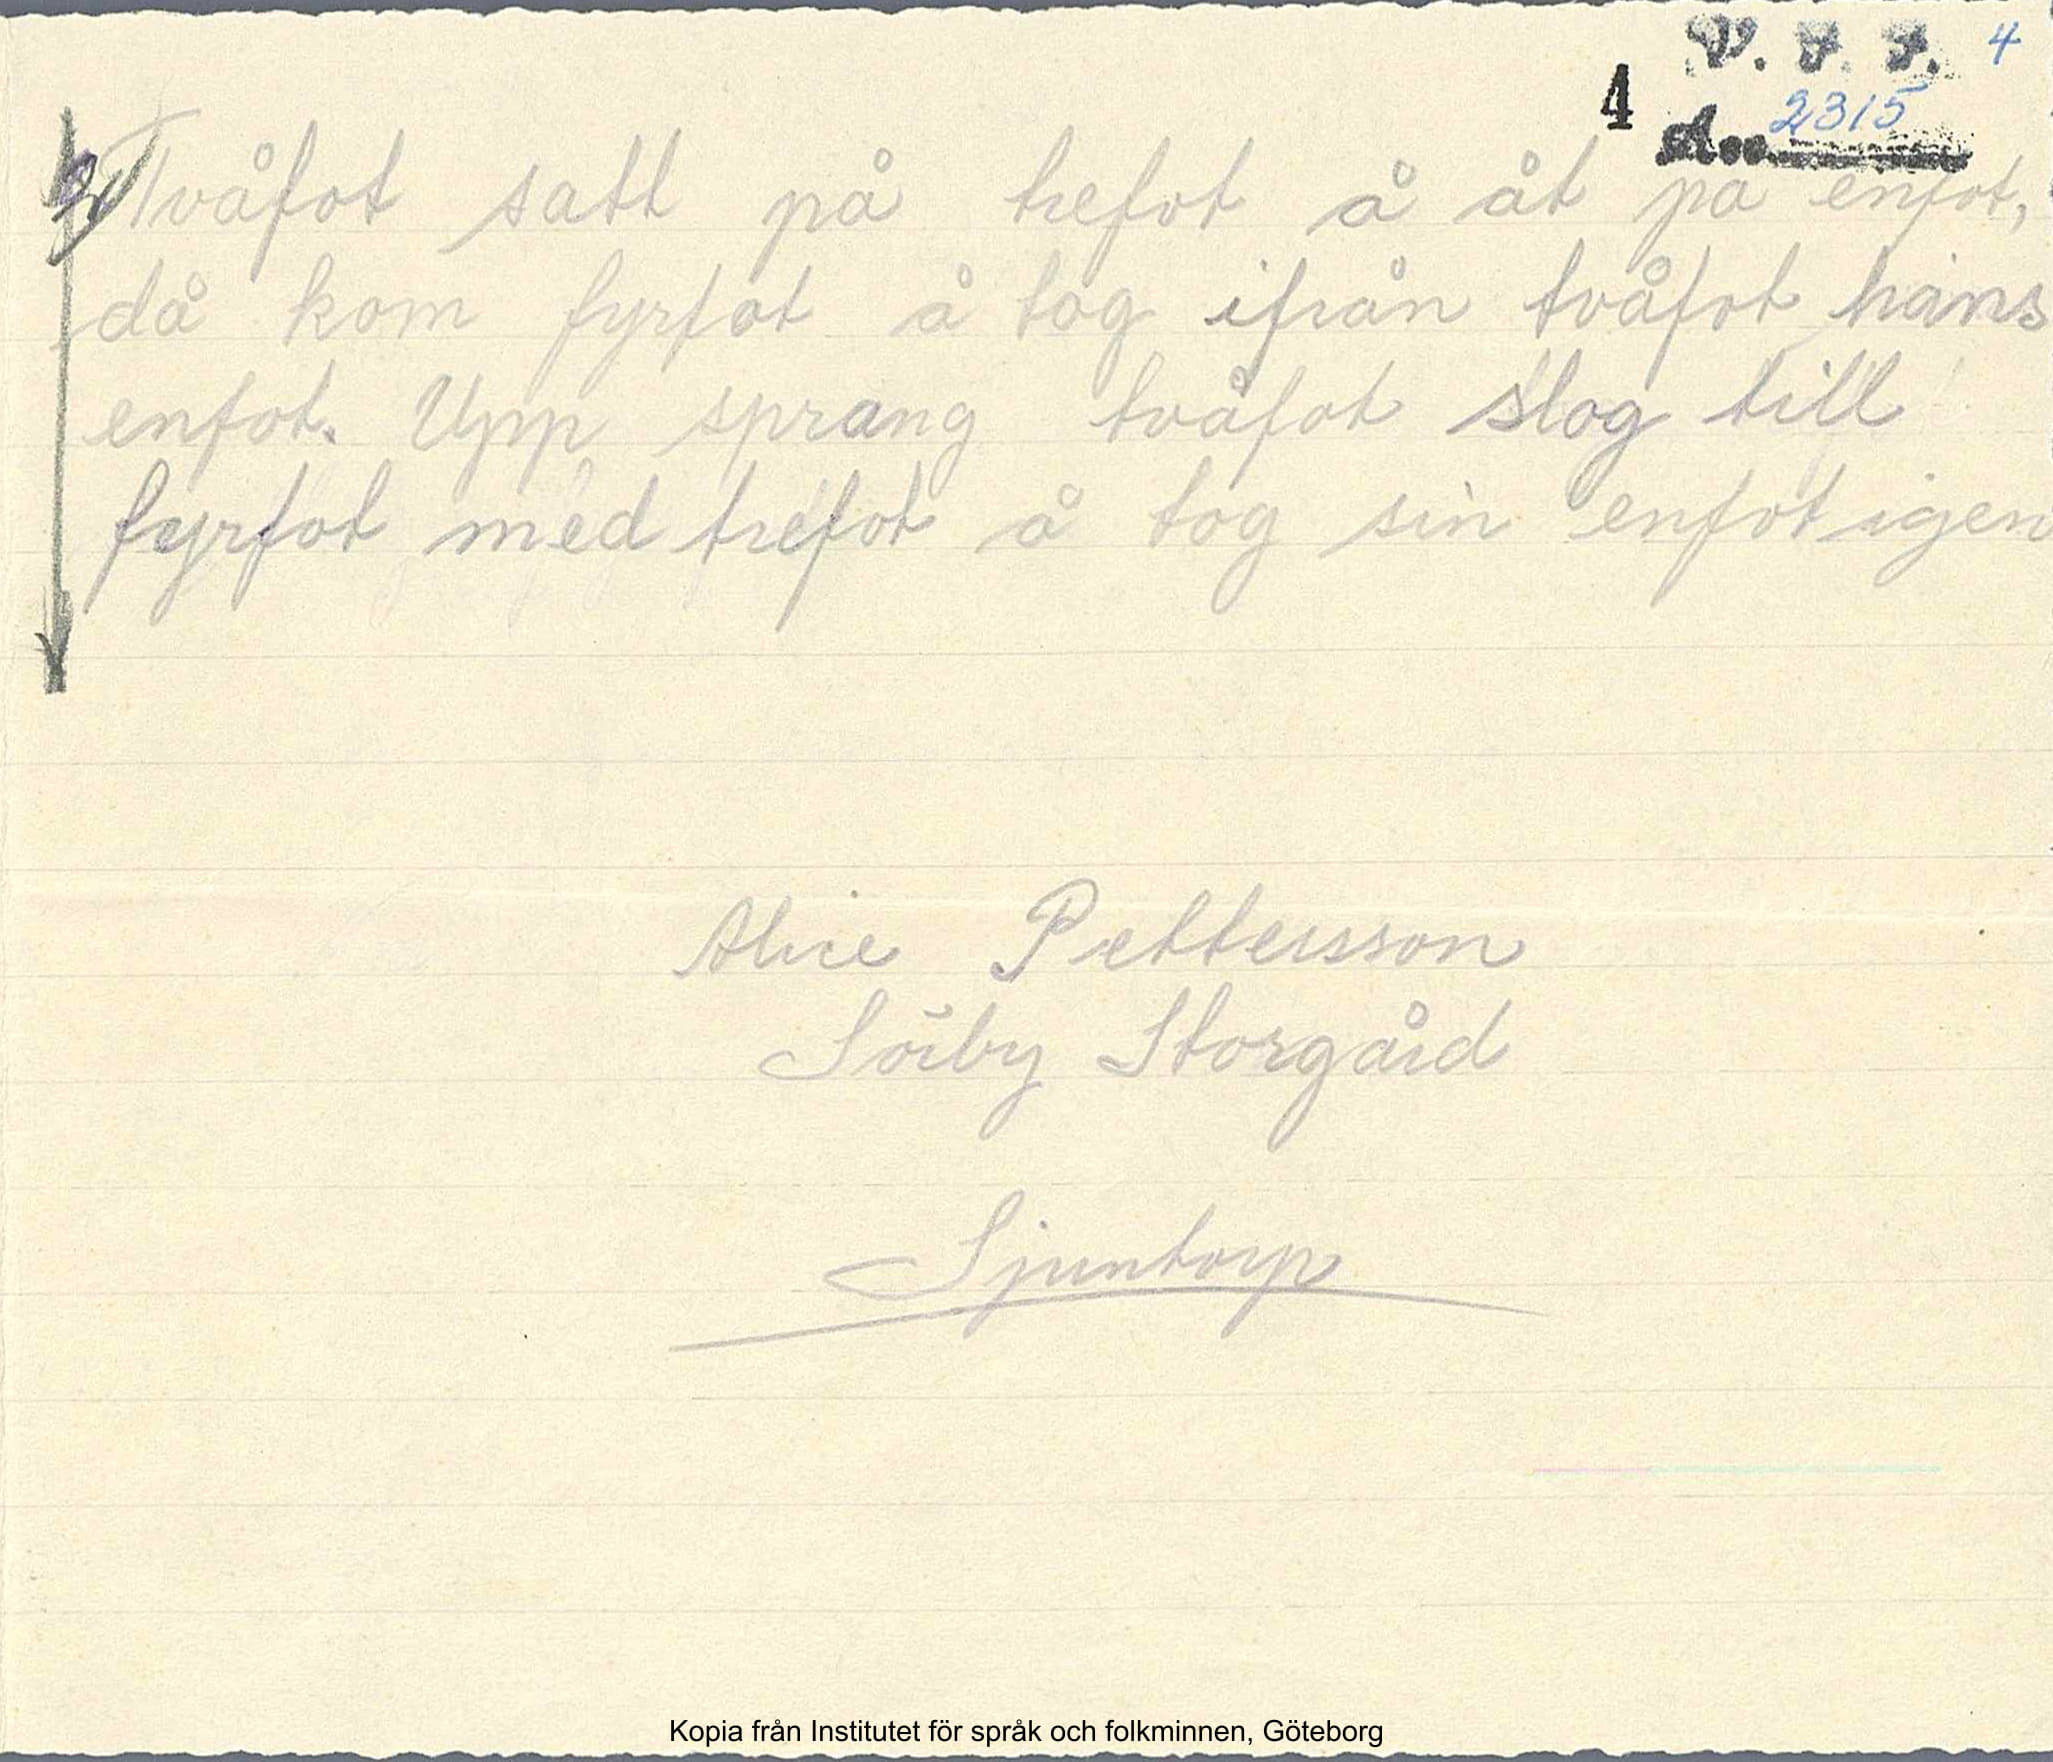 V. F. F. 4
4
Acc. 2315
Tvåfot satt på trefot å åt på enfot,
då kom fyrfot å tog ifrån tvåfot hans
enfot. Upp sprang tvåfot slog till
fyrfot med trefot å tog sin enfot igen
Alice Pettersson
Sörby Storgård
Sjuntorp
Kopia från Institutet för språk och folkminnen, Göteborg